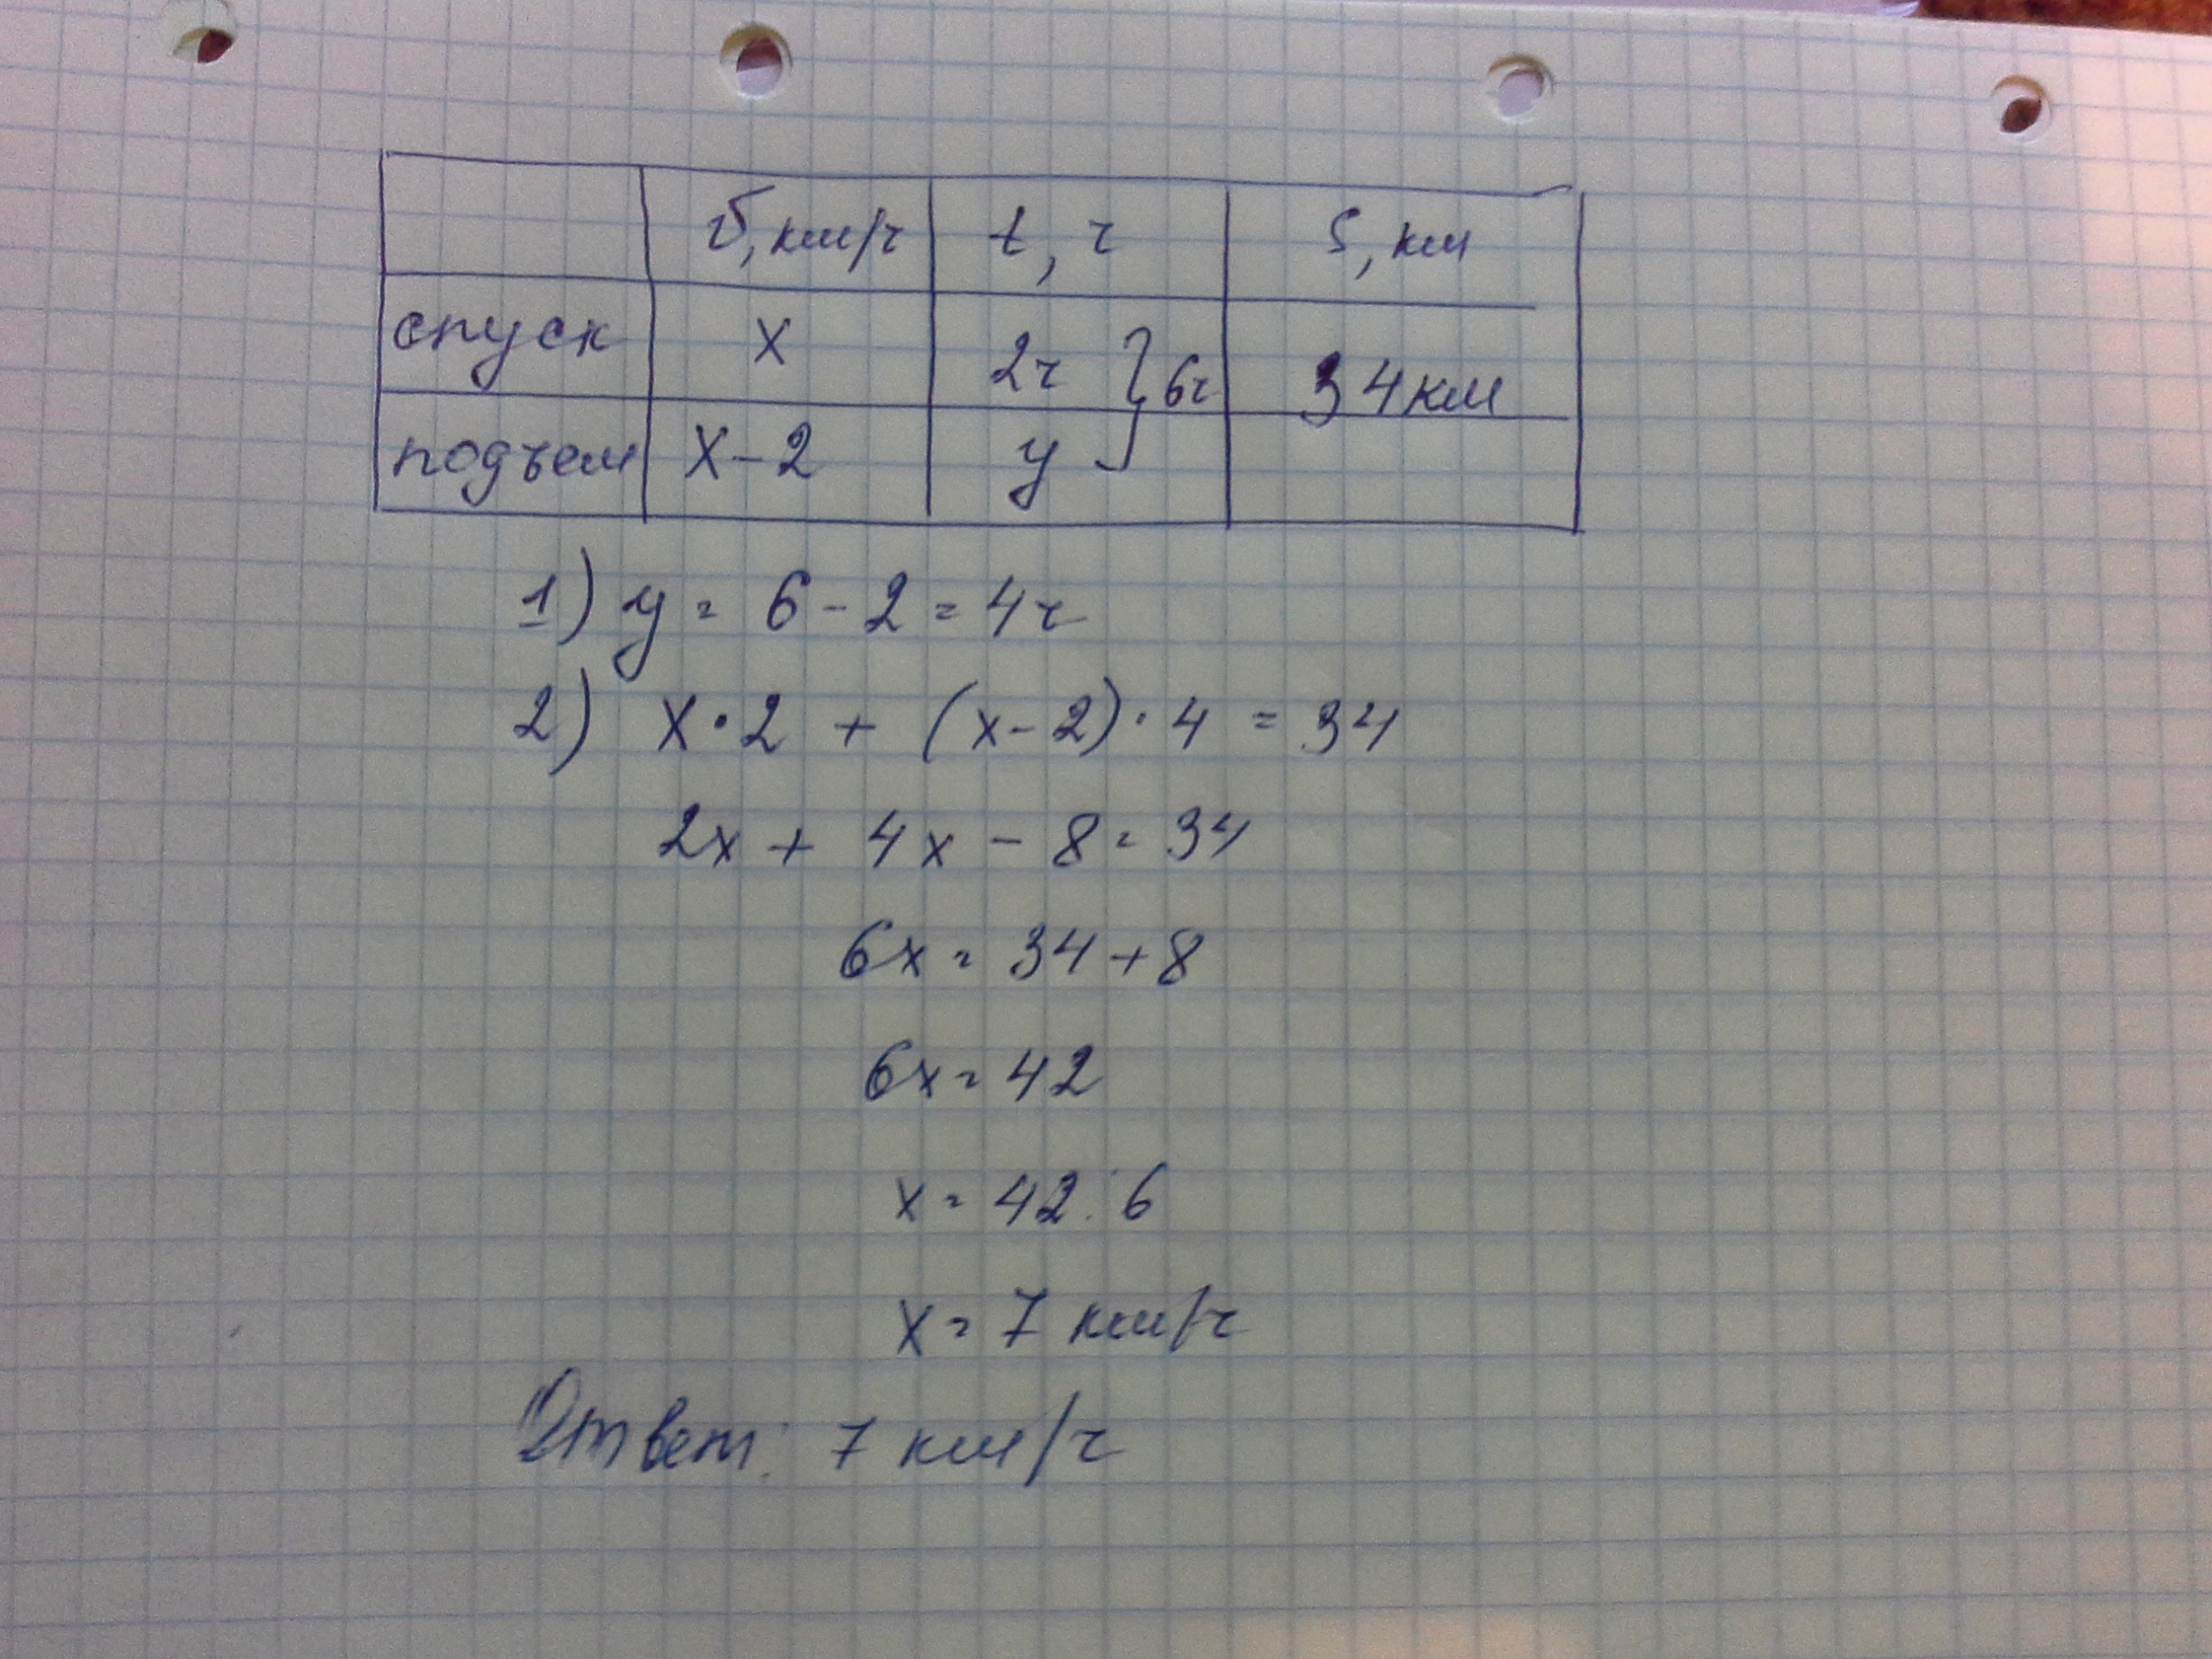 υ, км/ч t, ч S, км
спуск х 2ч } 6ч 34км
подъем х-2 у
1) у = 6 - 2 = 4ч
2) х · 2 + (х - 2) · 4 = 34
2х + 4х - 8 = 34
6х = 34 + 8
6х = 42
х = 42 : 6
х = 7 км/ч
Ответ: 7 км/ч